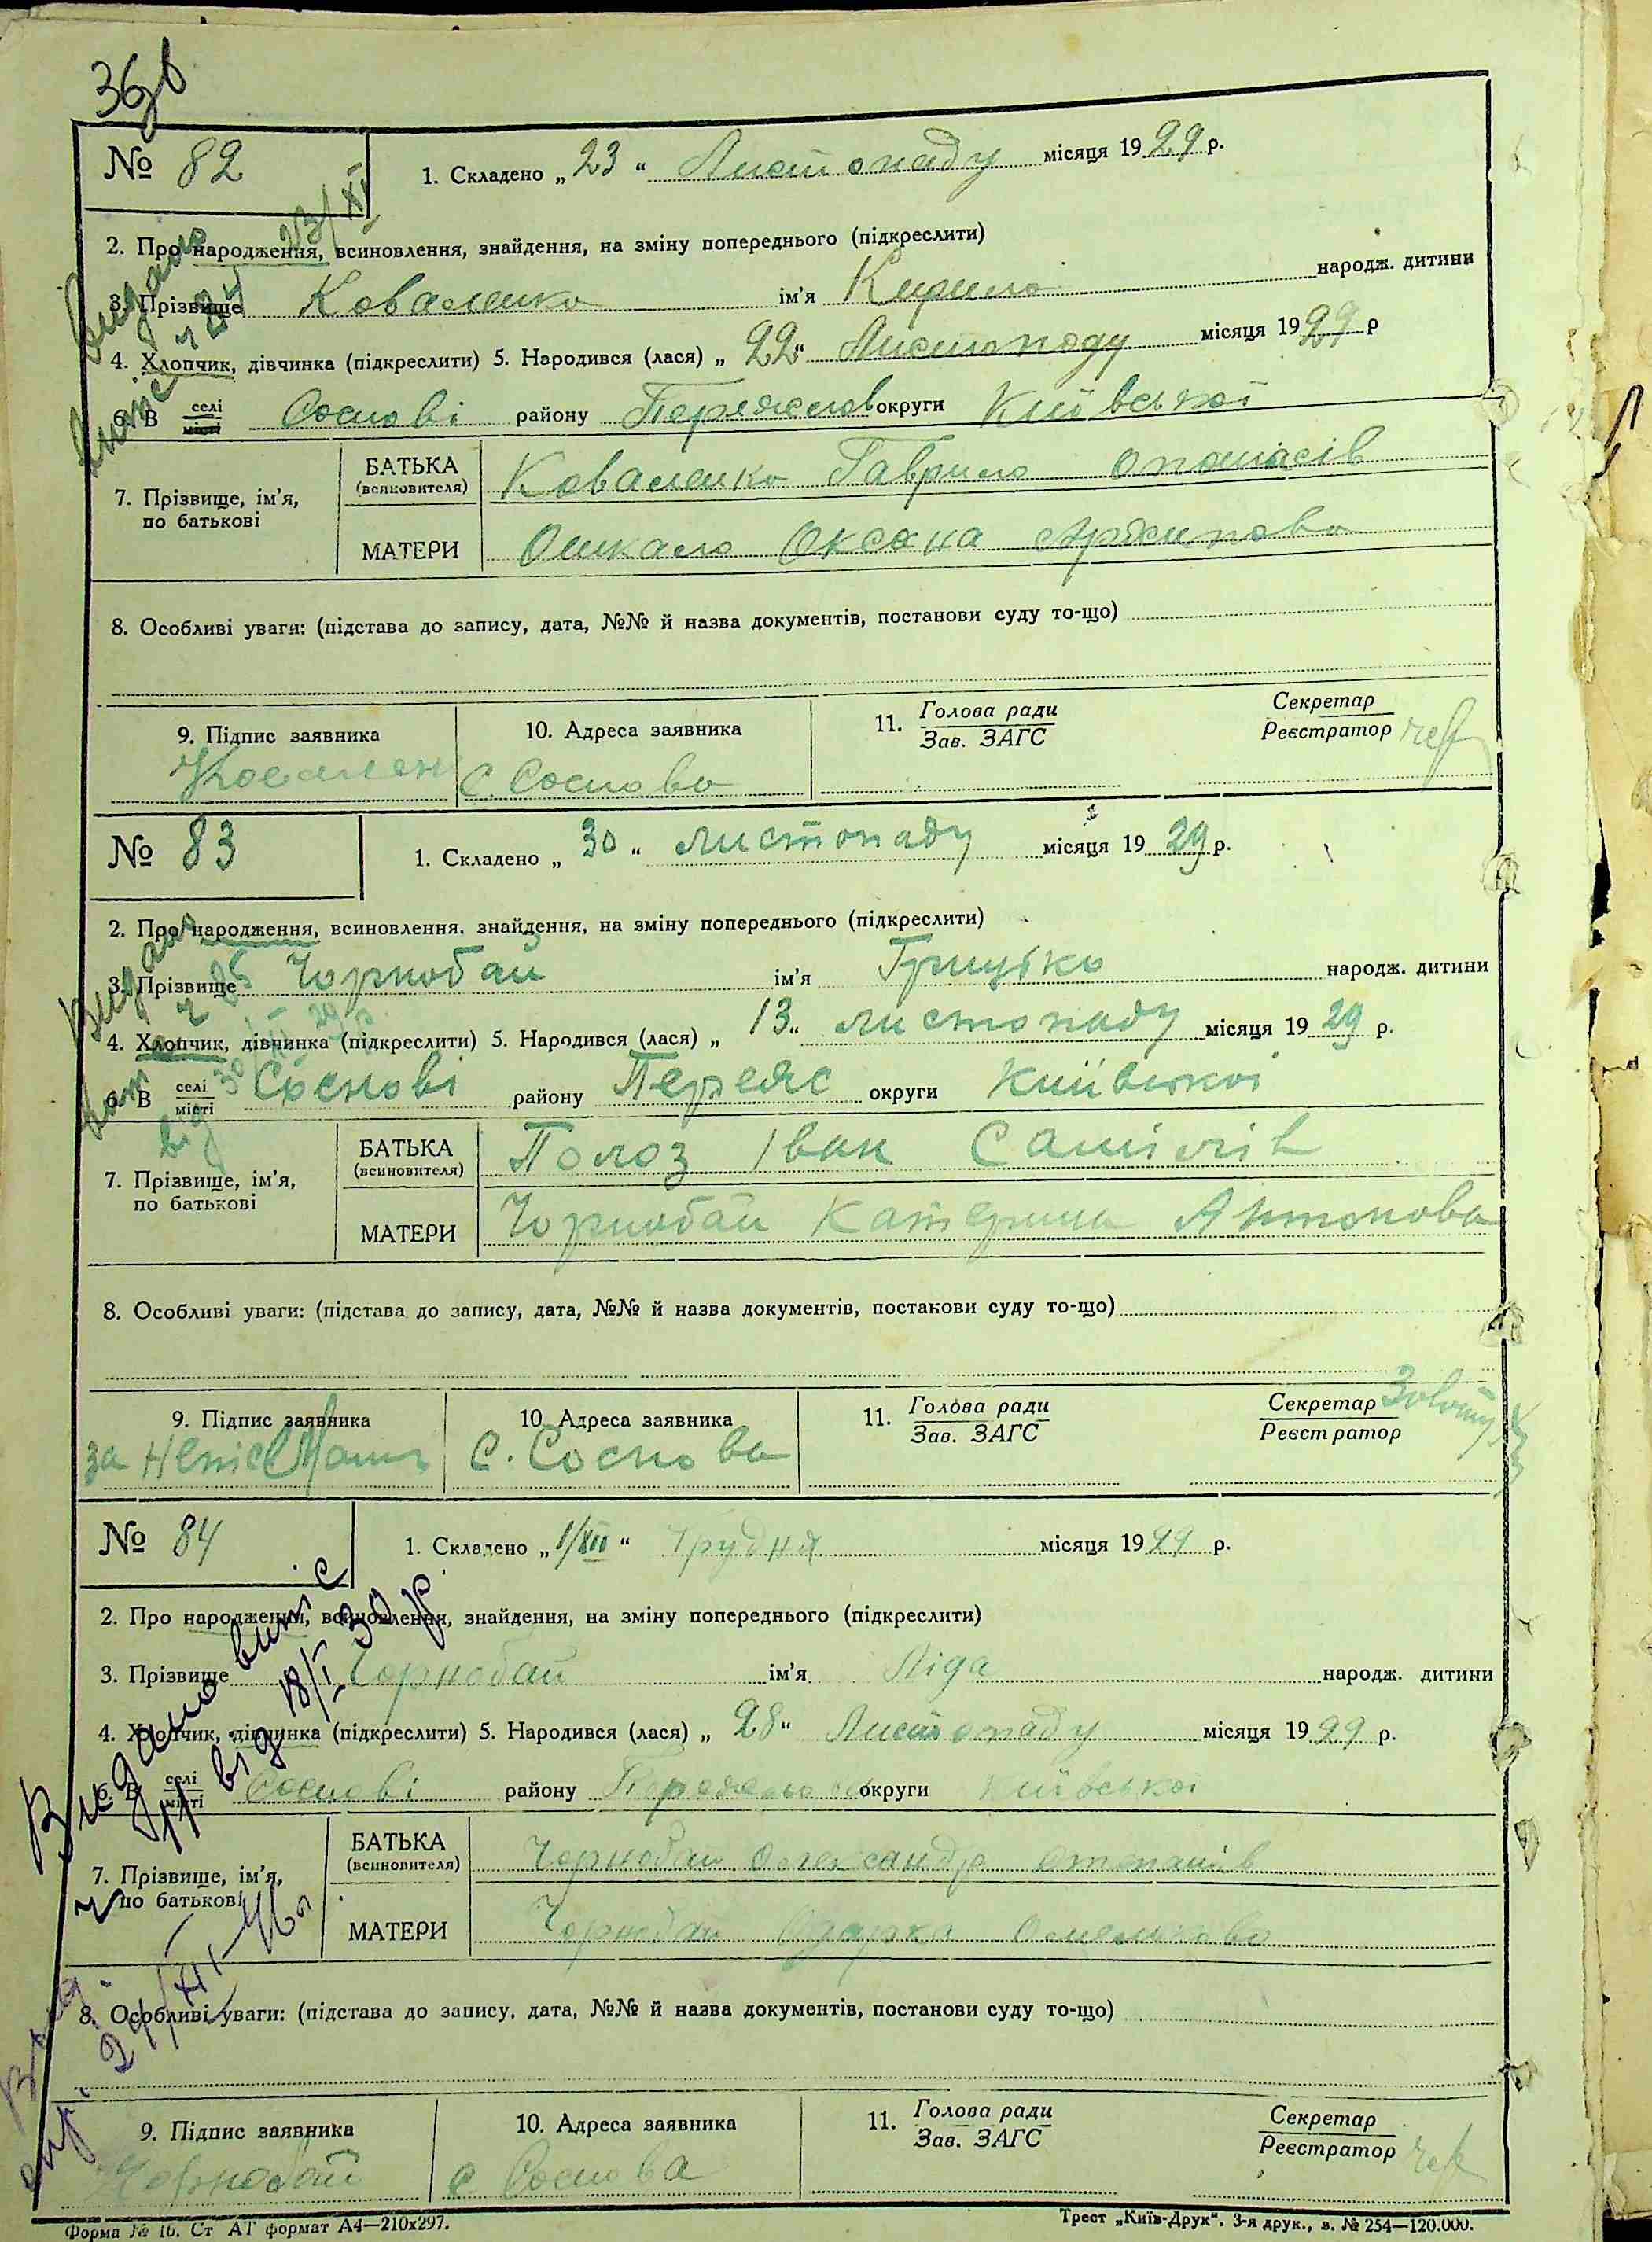 № 82
1. Складено „23“ Листопаду місяця 1929 р.
2. Про народження, всиновлення, знайдення, на зміну попереднього (підкреслити)
3. Прізвище Коваленко ім'я Кирило народж. дитини
4. Хлопчик, дівчинка (підкреслити) 5. Народився (лася) „22“ Листопаду місяця 1929 р
6. В селі місті Соснові району Переяслов округи Київської
7. Прізвище, ім'я, по батькові
БАТЬКА (всиновителя) Коваленко Гаврило Опанасів
МАТЕРИ Оксана
8. Особливі уваги: (підстава до запису, дата, №№ й назва документів, постанови суду то-що)
9. Підпис заявника 10. Адреса заявника 11. Голова ради Зав. ЗАГС Секретар Реєстратор
Коваленк С. Соснова
№ 83
1. Складено „30“ листопаду місяця 1929 р.
2. Про народження, всиновлення, знайдення, на зміну попереднього (підкреслити)
3. Прізвище Чорнобай ім'я Грицько народж. дитини
4. Хлопчик, дівчинка (підкреслити) 5. Народився (лася) „13“ листопаду місяця 1929 р.
6. В селі місті Соснові району Переяс округи Київської
7. Прізвище, ім'я, по батькові
БАТЬКА (всиновителя) Полоз Іван Самілів
МАТЕРИ Чорнобай Катерина Антонова
8. Особливі уваги: (підстава до запису, дата, №№ й назва документів, постанови суду то-що)
9. Підпис заявника 10. Адреса заявника 11. Голова ради Зав. ЗАГС Секретар Реєстратор
за С. Соснова
№ 84
1. Складено „1/XII“ Грудня місяця 1929 р.
2. Про народження, всиновлення, знайдення, на зміну попереднього (підкреслити)
3. Прізвище Чорнобай ім'я Ліда народж. дитини
4. Хлопчик, дівчинка (підкреслити) 5. Народився (лася) „28“ Листопаду місяця 1929 р.
6. В селі місті Соснові району округи Київської
7. Прізвище, ім'я, по батькові
БАТЬКА (всиновителя) Чорнобай Олександр Степанів
МАТЕРИ Чорнобай Одарка Омелькова
8. Особливі уваги: (підстава до запису, дата, №№ й назва документів, постанови суду то-що)
9. Підпис заявника 10. Адреса заявника 11. Голова ради Зав. ЗАГС Секретар Реєстратор
Чорнобай с Соснова
Видано витяг
від 18/I 30 р.
24/XII-46
Форма № 16. Ст АТ формат А4—210х297.
Трест „Київ-Друк“. 3-я друк., з. № 254—120.000.